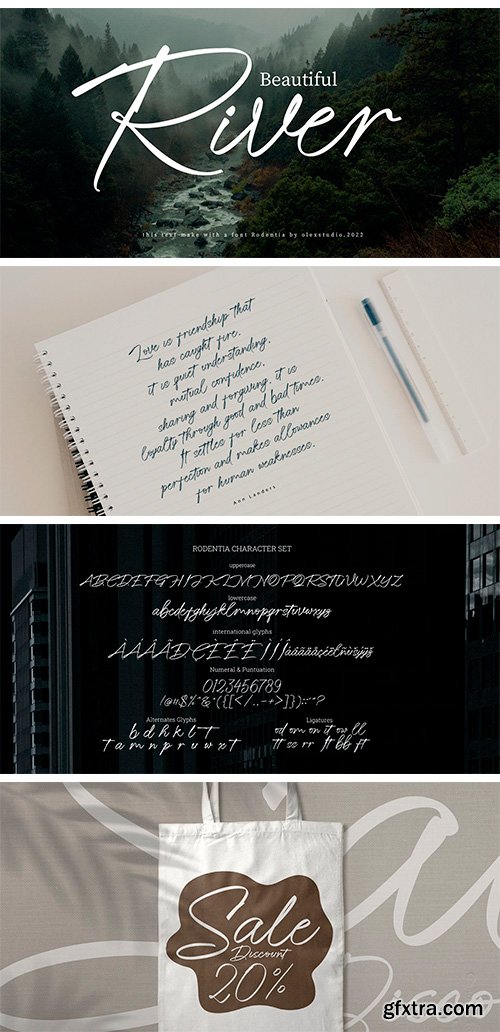 Beautiful
River
this text make with a font Rodentia by olexstudio.2022
Love is friendship that
has caught fire.
it is quiet understanding,
mutual confidence,
sharing and forgiving. it is
loyalty through good and bad times.
It settles for less than
perfection and makes allowances
for human weaknesses.
Ann Landers
RODENTIA CHARACTER SET
uppercase
ABCDEFGHIJKLMNOPQRSTUVWXYZ
lowercase
abcdefghijklmnopqrstuvwxyz
international glyphs
Numeral & Puntuation
0123456789
Alternates Glyphs
b d h k l T
t a m n p r u w x t
Ligatures
od om on it ow ll
tt ss rr ft bb ff
Sale
Discount
20%
Sa
Disco
gfxtra.com